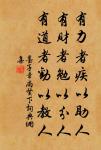 有力者疾以助人
有财者勉以分人
有道者勸以教人
墨子尚賢下詞典網
集